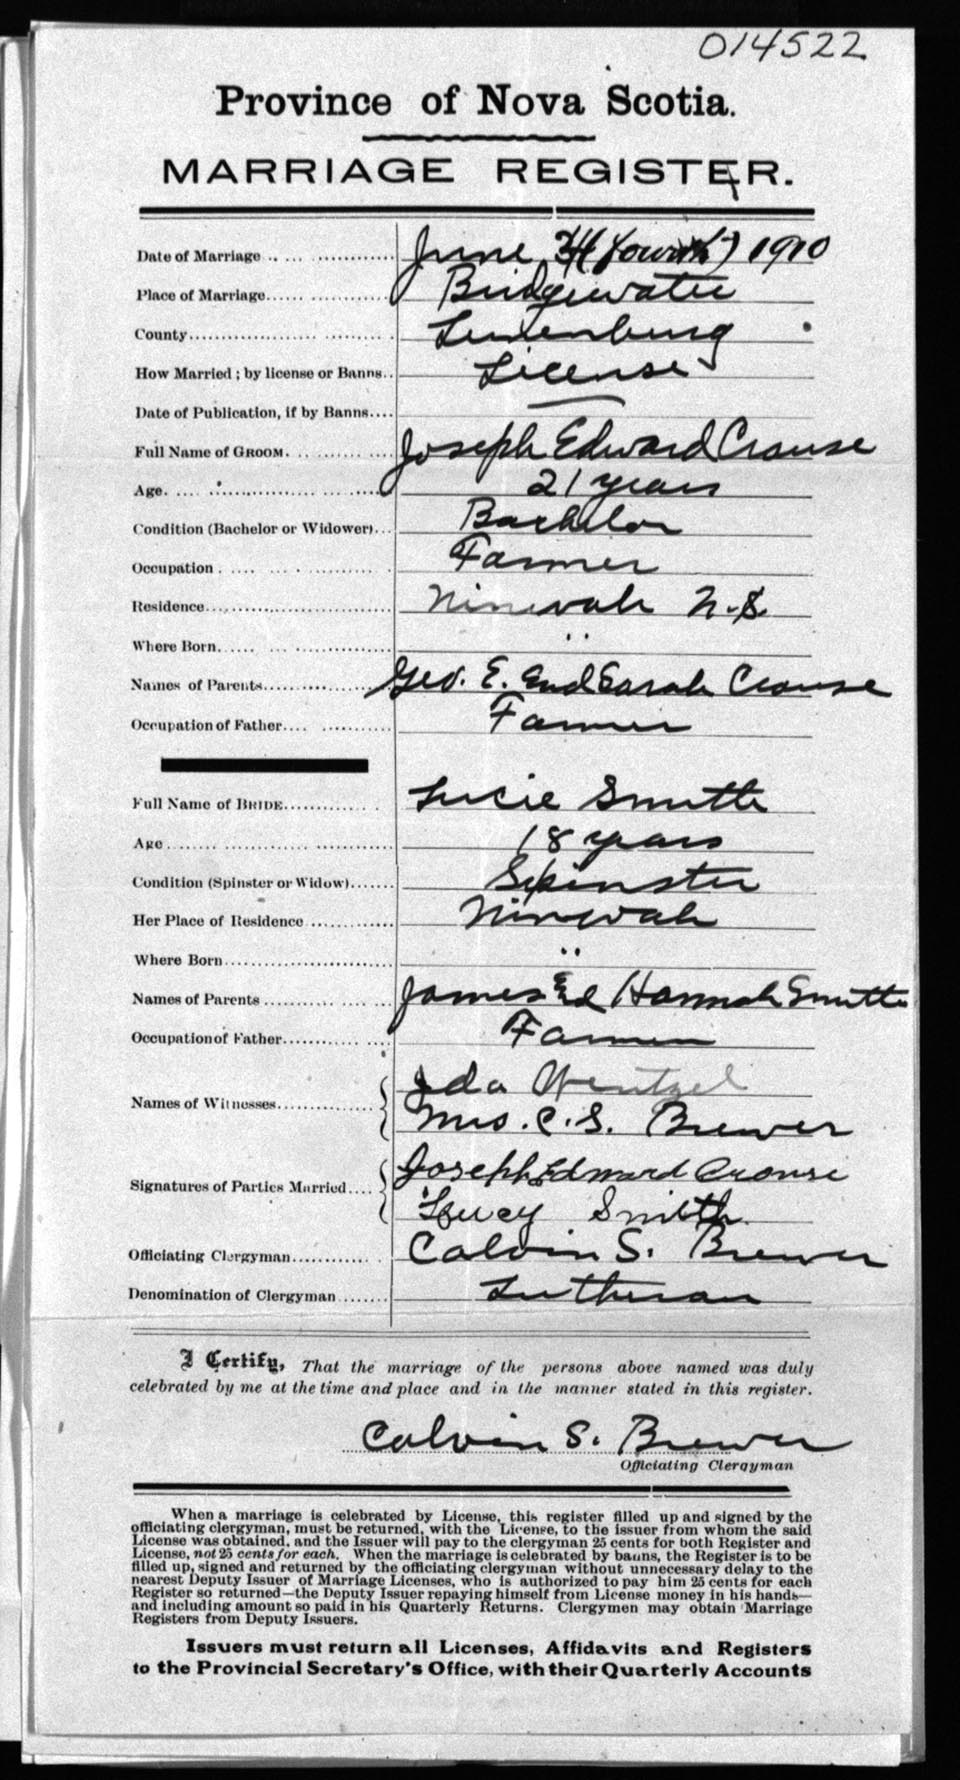 014522
Province of Nova Scotia.
MARRIAGE REGISTER.
Date of Marriage June 4 (fourth) 1910
Place of Marriage Bridgewater
County Lunenburg
How Married ; by license or Banns License
Date of Publication, if by Banns —
Full Name of GROOM. Joseph Edward Crouse
Age. 21 years
Condition (Bachelor or Widower) Bachelor
Occupation Farmer
Residence Ninevah N.S.
Where Born "
Names of Parents Geo. E. and Sarah Crouse
Occupation of Father Farmer
Full Name of BRIDE Lucie Smith
Age 18 years
Condition (Spinster or Widow) Spinster
Her Place of Residence Ninevah
Where Born "
Names of Parents James Ed Hannah Smith
Occupation of Father Farmer
Names of Witnesses Ida Wentzel
Mrs. C. S. Brewer
Signatures of Parties Married Joseph Edward Crouse
Lucy Smith
Officiating Clergyman Calvin S. Brewer
Denomination of Clergyman Lutheran
I Certify, That the marriage of the persons above named was duly
celebrated by me at the time and place and in the manner stated in this register.
Calvin S. Brewer
Officiating Clergyman
When a marriage is celebrated by License, this register filled up and signed by the
officiating clergyman, must be returned, with the License, to the issuer from whom the said
License was obtained, and the Issuer will pay to the clergyman 25 cents for both Register and
License, not 25 cents for each. When the marriage is celebrated by banns, the Register is to be
filled up, signed and returned by the officiating clergyman without unnecessary delay to the
nearest Deputy Issuer of Marriage Licenses, who is authorized to pay him 25 cents for each
Register so returned—the Deputy Issuer repaying himself from License money in his hands—
and including amount so paid in his Quarterly Returns. Clergymen may obtain Marriage
Registers from Deputy Issuers.
Issuers must return all Licenses, Affidavits and Registers
to the Provincial Secretary's Office, with their Quarterly Accounts